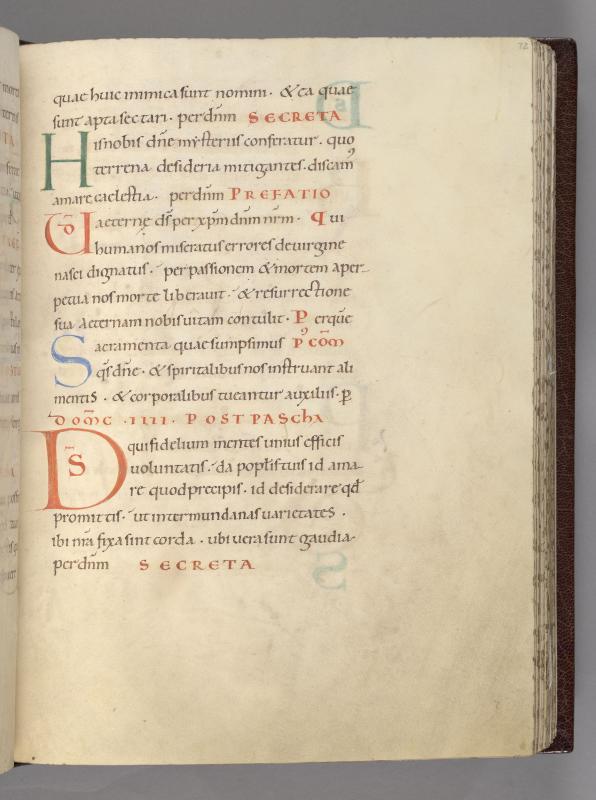 72
quae huic inimica sunt nomini · & ea quae
sunt apta sectari · per dn̄m SECRETA
His nobis dn̄e mysteriis conferatur · quo
terrena desideria mitigantes · discam᾽
amare caelestia · per dn̄m PREFATIO
UD̄ aeternę d̄s per xp̄m dn̄m nr̄m · Qui
humanos miseratus errores de virgine
nasci dignatus · per passionem & mortem a per-
petua nos morte liberavit · & resurrectione
sua aeternam nobis vitam contulit · Per quē
Sacramenta quae sumpsimus P᾽ CŌM
qs̄ dn̄e · & spiritalibus nos instruant ali
mentis · & corporalibus tueantur auxiliis · p̄
DOM̄C · IIII · POST PASCHA
D̄S qui fidelium mentes unius efficis
voluntatis · da popl̄is tuis id ama-
re quod precipis · id desiderare qđ
promittis · ut inter mundanas varietates ·
ibi nr̄a fixa sint corda · ubi vera sunt gaudia·
per dn̄m SECRETA